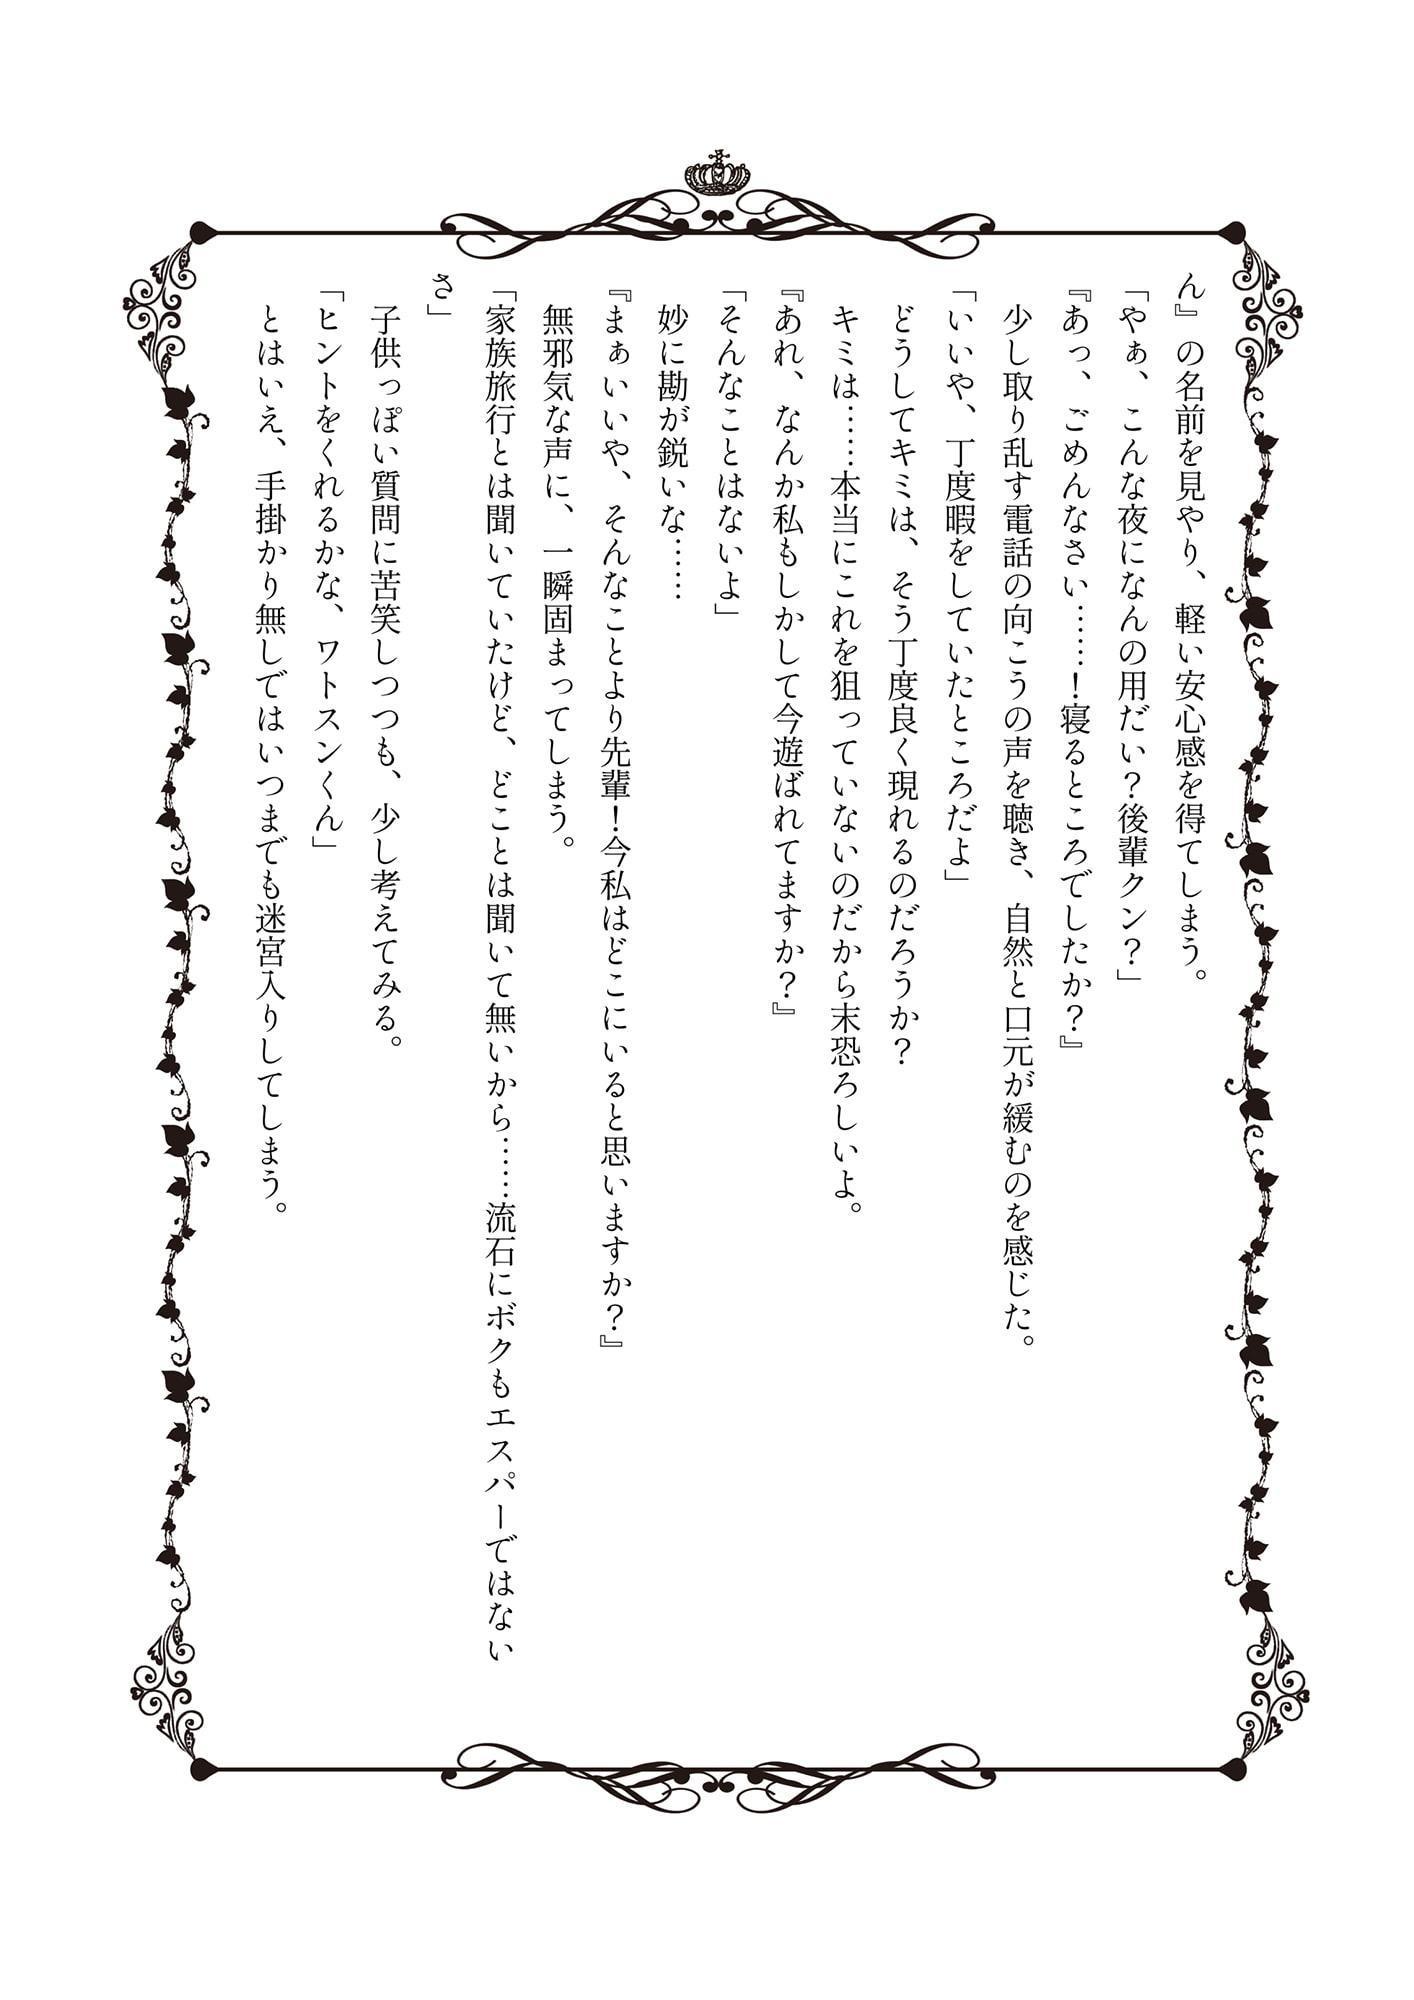 ん』の名前を見やり、軽い安心感を得てしまう。
「やぁ、こんな夜になんの用だい？後輩クン？」
『あっ、ごめんなさい……！寝るところでしたか？』
少し取り乱す電話の向こうの声を聴き、自然と口元が緩むのを感じた。
「いいや、丁度暇をしていたところだよ」
どうしてキミは、そう丁度良く現れるのだろうか？
キミは……本当にこれを狙っていないのだから末恐ろしいよ。
『あれ、なんか私もしかして今遊ばれてますか？』
「そんなことはないよ」
妙に勘が鋭いな……
『まぁいいや、そんなことより先輩！今私はどこにいると思いますか？』
無邪気な声に、一瞬固まってしまう。
「家族旅行とは聞いていたけど、どことは聞いて無いから……流石にボクもエスパーではない
さ」
子供っぽい質問に苦笑しつつも、少し考えてみる。
「ヒントをくれるかな、ワトスンくん」
とはいえ、手掛かり無しではいつまでも迷宮入りしてしまう。